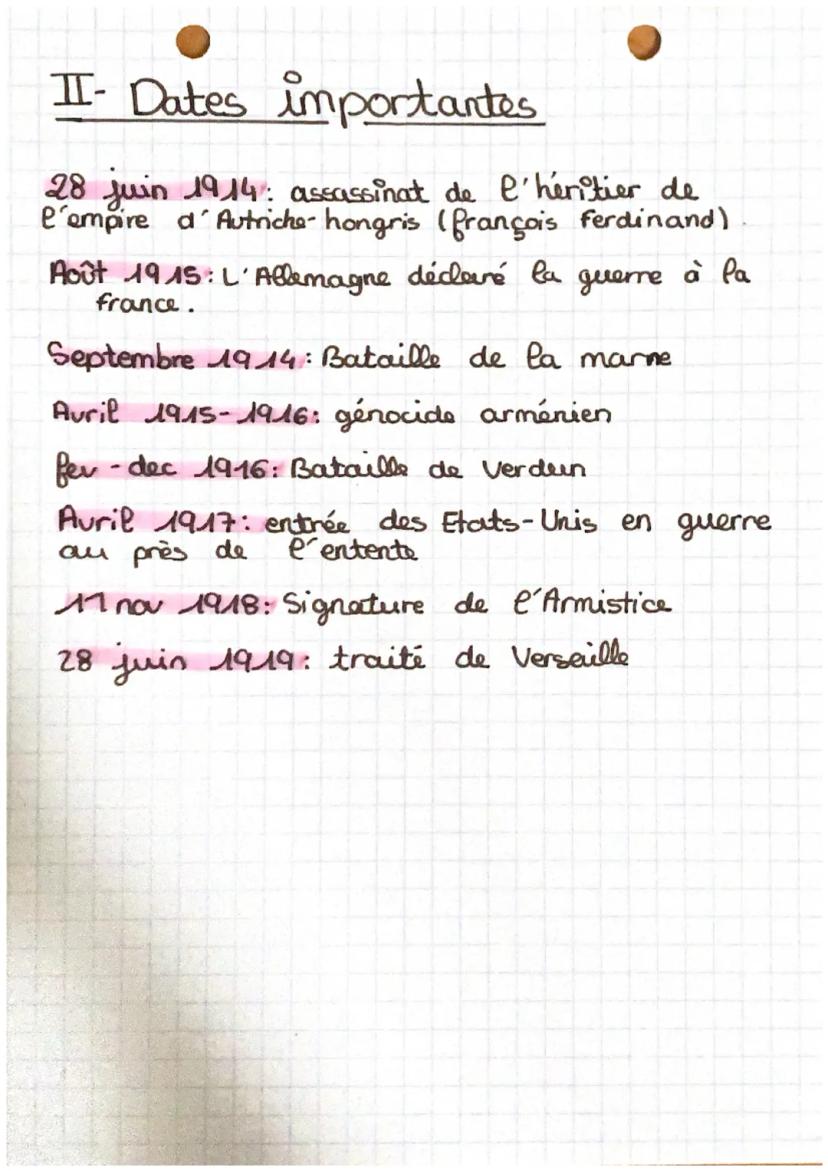 II- Dates importantes
28 juin 1914: assassinat de l'héritier de
l'empire d'Autriche-hongris (françois ferdinand).
Août 1915: L'Allemagne déclaré la guerre à la
france.
Septembre 1914: Bataille de la marne
Avril 1915-1916: génocide arménien
fev - dec 1916: Bataille de Verdun
Avril 1917: entrée des Etats-Unis en guerre
au près de l'entente
11 nov 1918: Signature de l'Armistice
28 juin 1919: traité de Verseille